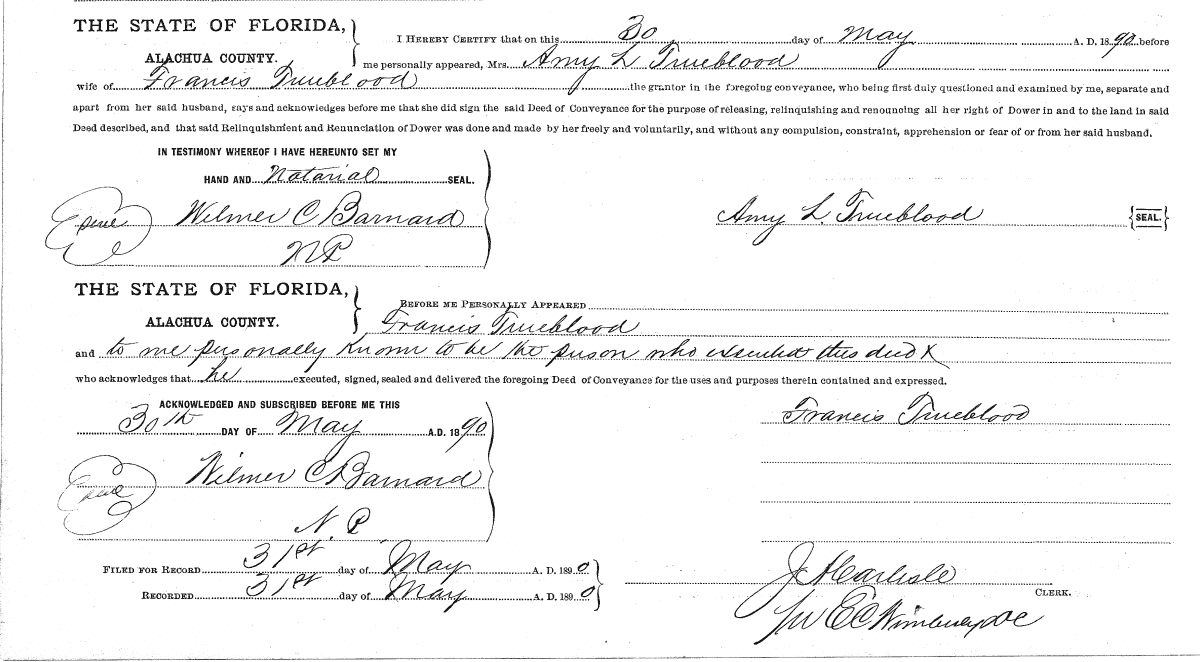 THE STATE OF FLORIDA,
ALACHUA COUNTY.
I HEREBY CERTIFY that on this 30 day of May A. D. 1890 before
me personally appeared, Mrs. Amy L Trueblood
wife of Francis Trueblood the grantor in the foregoing conveyance, who being first duly questioned and examined by me, separate and
apart from her said husband, says and acknowledges before me that she did sign the said Deed of Conveyance for the purpose of releasing, relinquishing and renouncing all her right of Dower in and to the land in said
Deed described, and that said Relinquishment and Renunciation of Dower was done and made by her freely and voluntarily, and without any compulsion, constraint, apprehension or fear of or from her said husband.
IN TESTIMONY WHEREOF I HAVE HEREUNTO SET MY
HAND AND Notarial SEAL.
Wilmer C Barnard
NP
Amy L. Trueblood {SEAL.}
THE STATE OF FLORIDA,
ALACHUA COUNTY.
BEFORE ME PERSONALLY APPEARED
Francis Trueblood
and to me personally known to be the person who executed this deed
who acknowledges that he executed, signed, sealed and delivered the foregoing Deed of Conveyance for the uses and purposes therein contained and expressed.
ACKNOWLEDGED AND SUBSCRIBED BEFORE ME THIS
30th DAY OF May A.D. 1890
Wilmer C Barnard
N. P.
Francis Trueblood
FILED FOR RECORD 31st day of May A. D. 1890
RECORDED 31st day of May A. D. 1890
J A Carlisle
CLERK.
E C